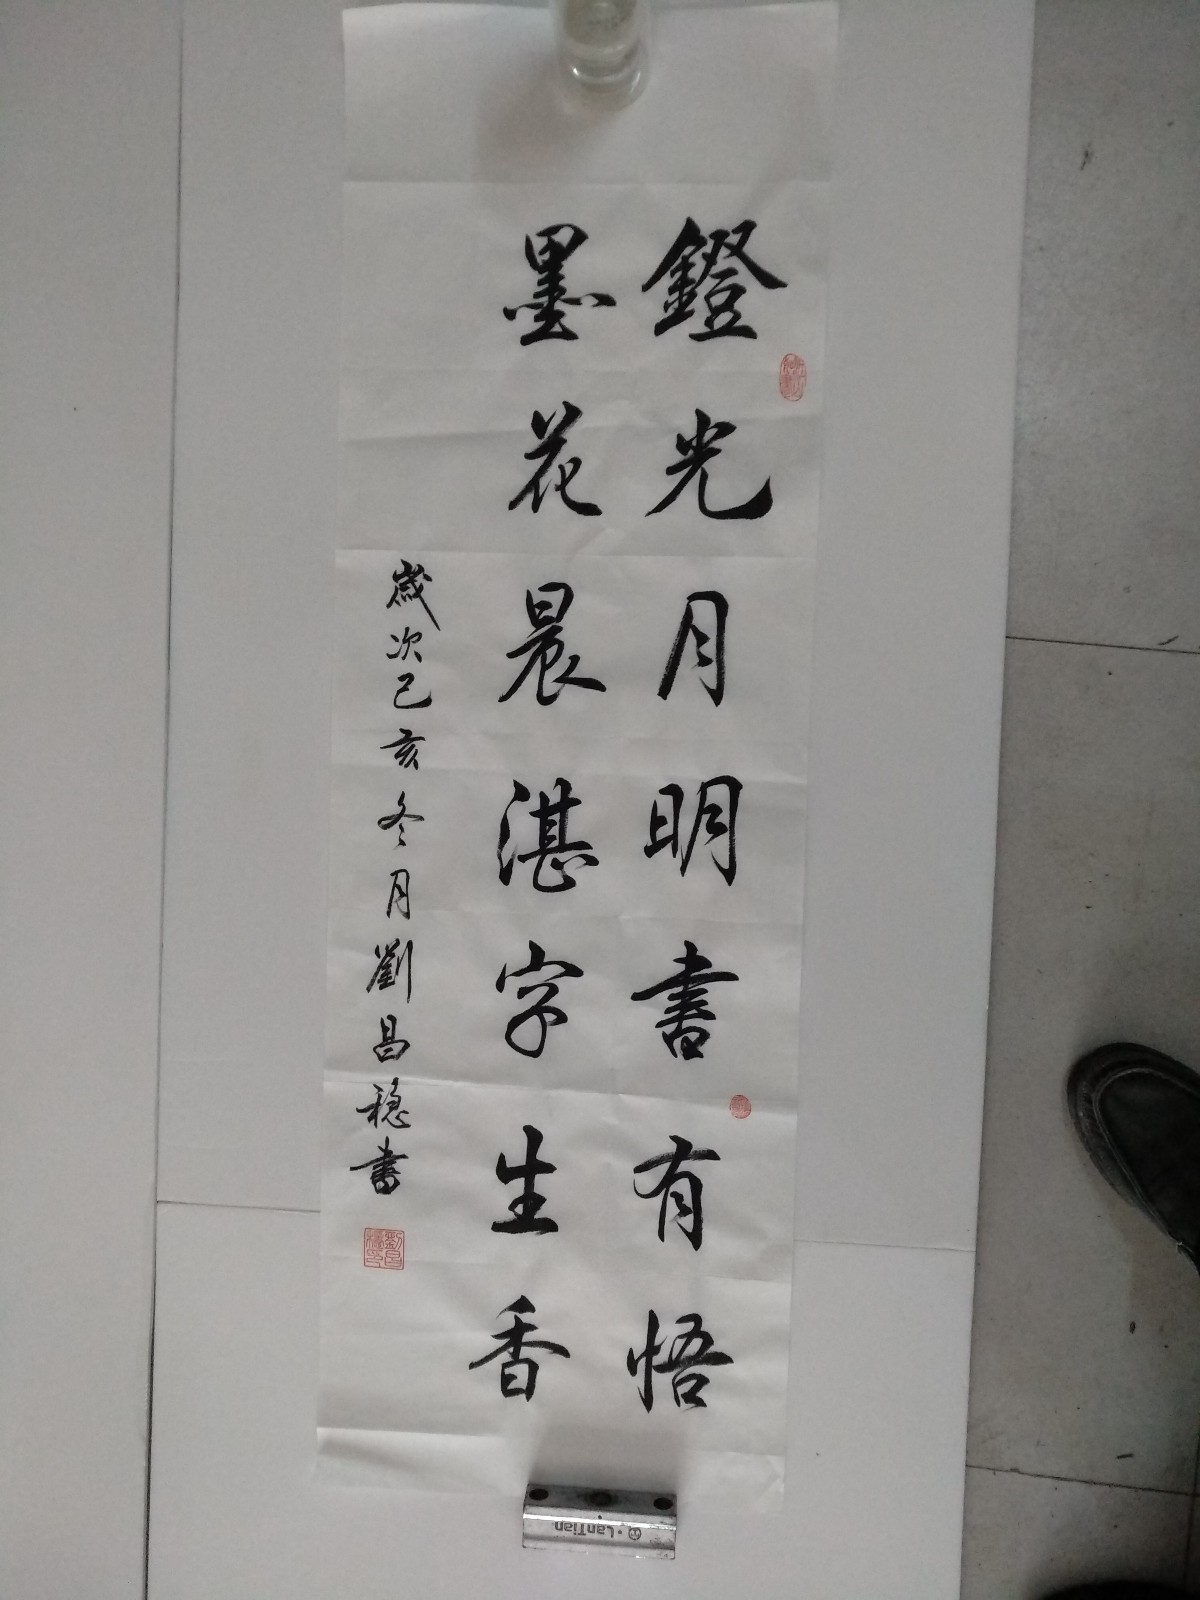 鐙光月明書有悟
墨花晨湛字生香
歲次己亥冬月劉昌穩書
劉昌穩印
LanTian